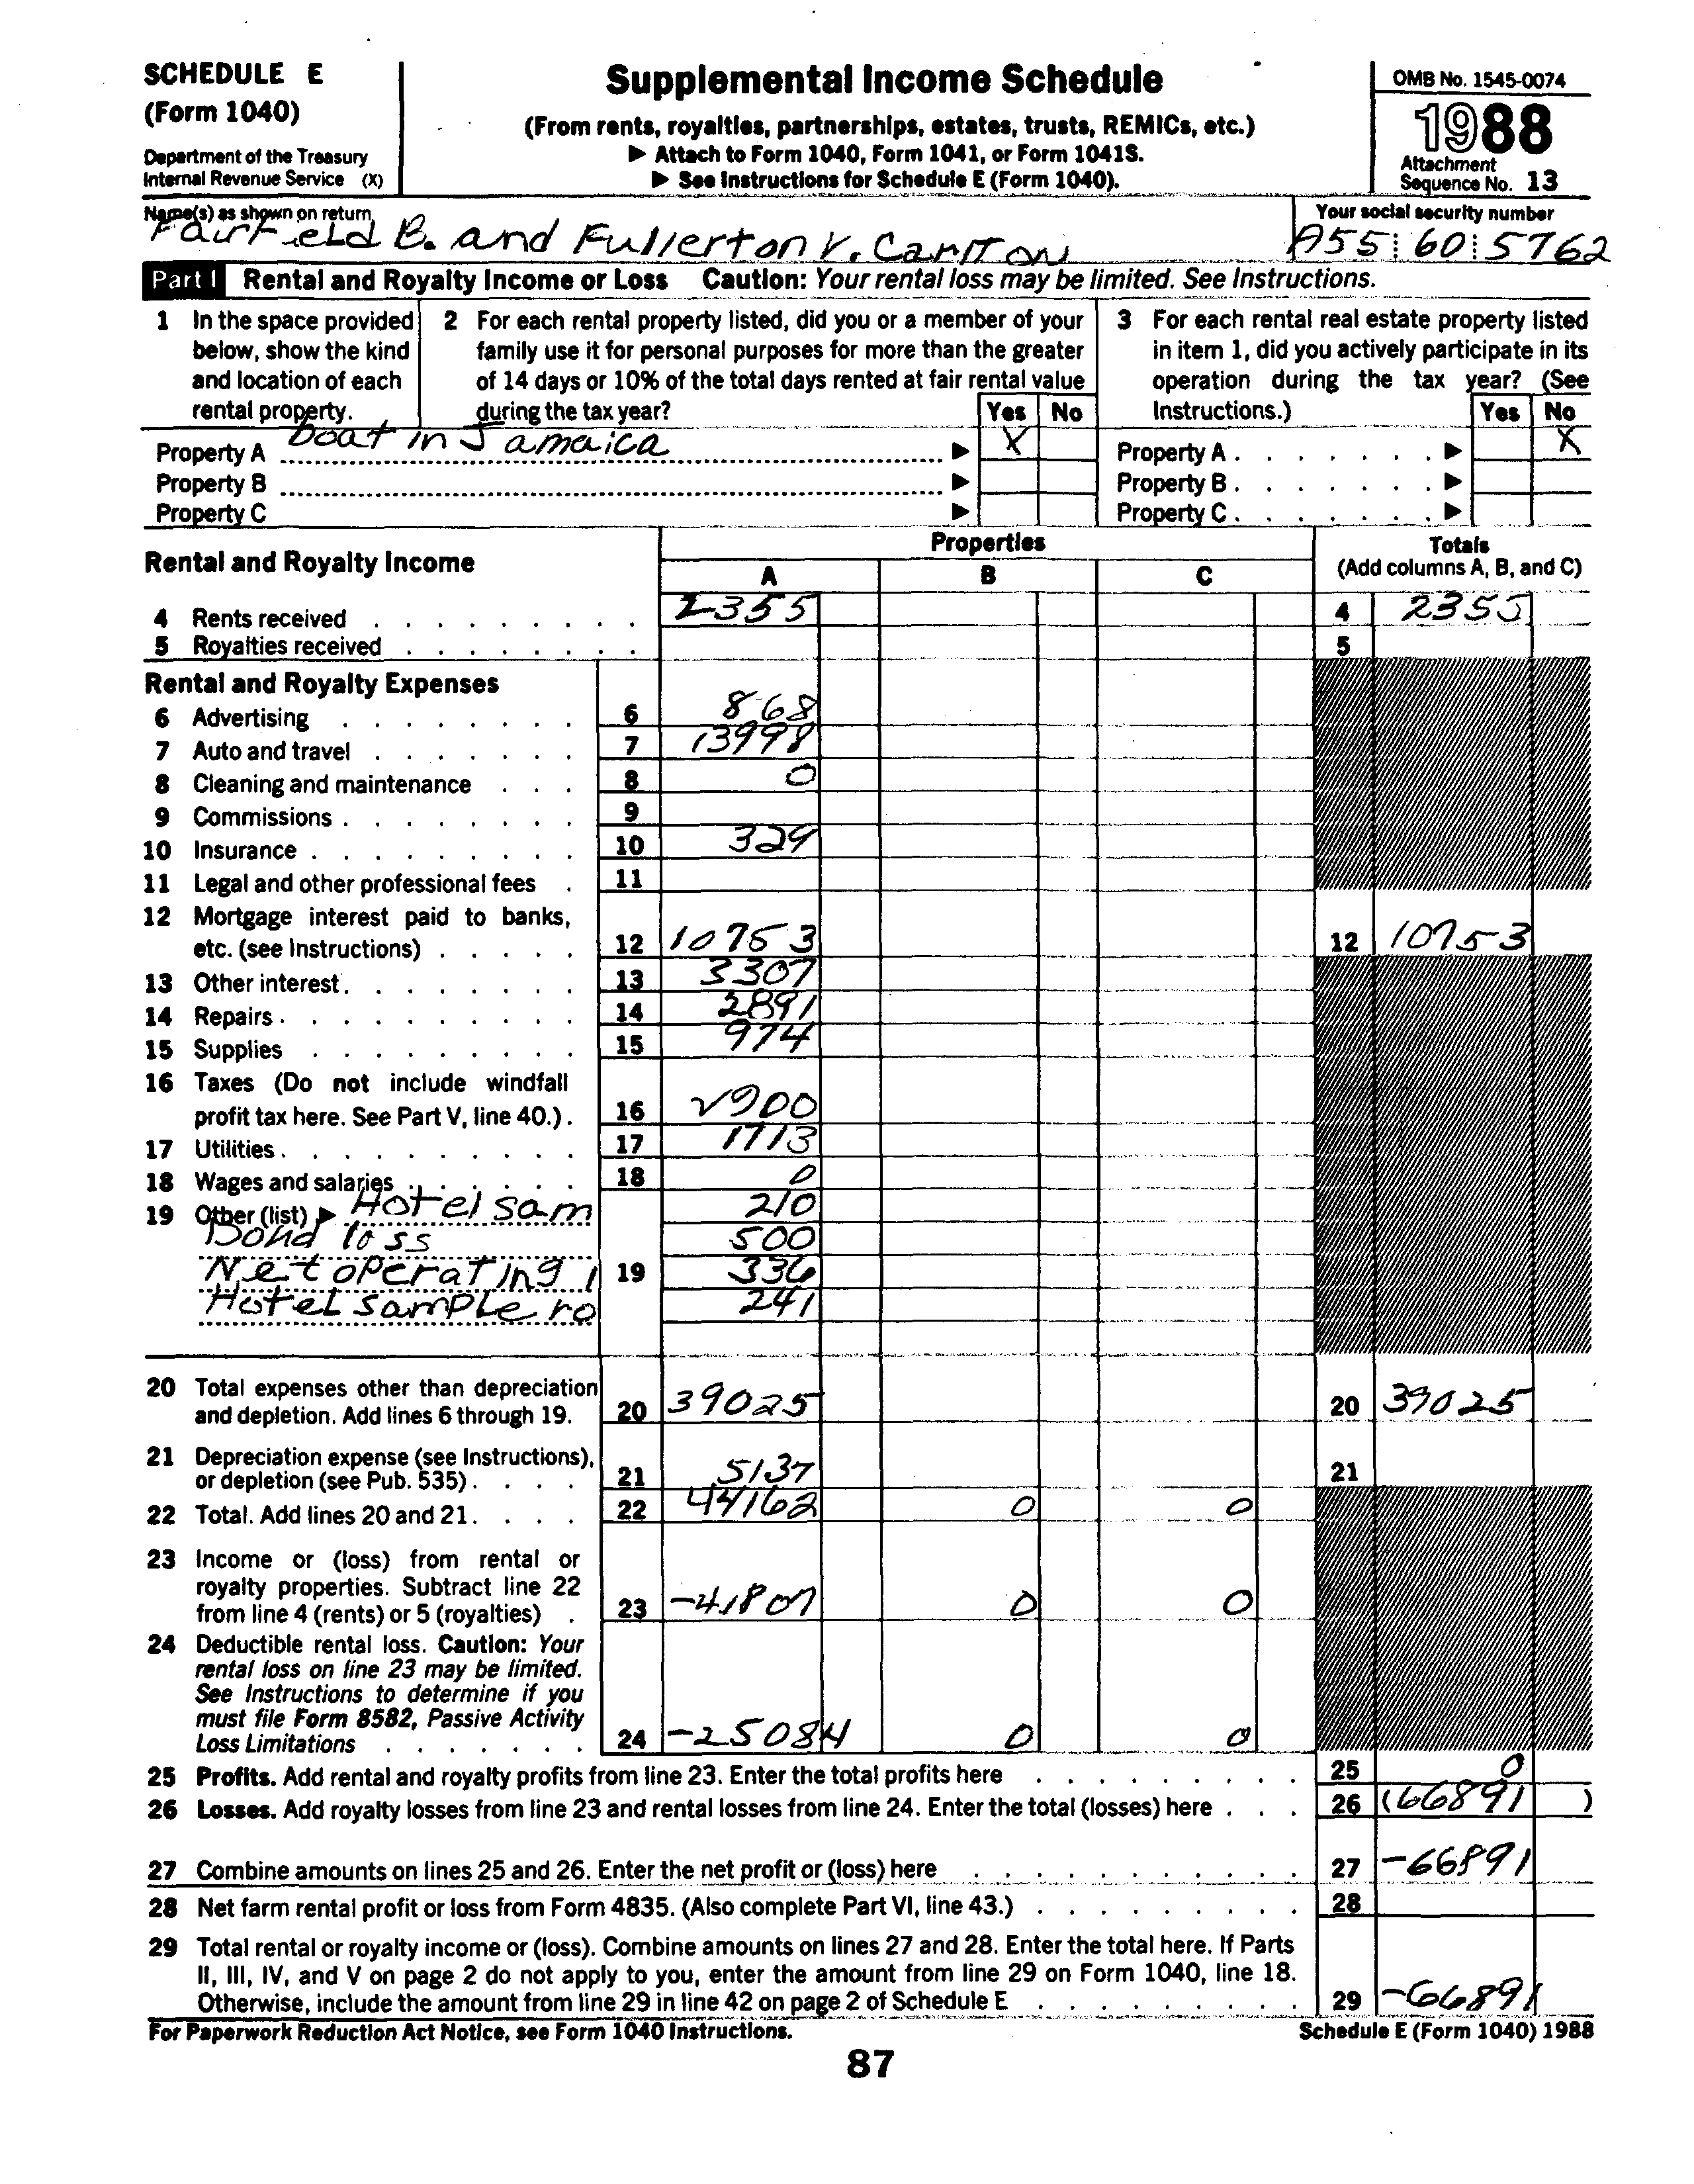 SCHEDULE E
(Form 1040)
Department of the Treasury
Internal Revenue Service (X)
Supplemental Income Schedule
(From rents, royalties, partnerships, estates, trusts, REMICs, etc.)
▶ Attach to Form 1040, Form 1041, or Form 1041S.
▶ See Instructions for Schedule E (Form 1040).
OMB No. 1545-0074
1988
Attachment
Sequence No. 13
Name(s) as shown on return
Fairfield B. and Fullerton V. Carlton
Your social security number
A55 60 5762
Part I Rental and Royalty Income or Loss Caution: Your rental loss may be limited. See Instructions.
1 In the space provided below, show the kind and location of each rental property.
2 For each rental property listed, did you or a member of your family use it for personal purposes for more than the greater of 14 days or 10% of the total days rented at fair rental value during the tax year? Yes No
3 For each rental real estate property listed in item 1, did you actively participate in its operation during the tax year? (See Instructions.) Yes No
Property A boat in Jamaica ▶ X Property A ▶ X
Property B ▶ Property B ▶
Property C ▶ Property C ▶
Rental and Royalty Income Properties Totals
A B C (Add columns A, B, and C)
4 Rents received 2355 4 2355
5 Royalties received 5
Rental and Royalty Expenses
6 Advertising 6 868
7 Auto and travel 7 13998
8 Cleaning and maintenance 8 0
9 Commissions 9
10 Insurance 10 329
11 Legal and other professional fees 11
12 Mortgage interest paid to banks,
etc. (see Instructions) 12 10753 12 10753
13 Other interest 13 3307
14 Repairs 14 2891
15 Supplies 15 974
16 Taxes (Do not include windfall
profit tax here. See Part V, line 40.) 16 2900
17 Utilities 17 1713
18 Wages and salaries 18 0
19 Other (list) ▶ Hotel sam 210
Bond loss 500
Net operating l 19 336
Hotel sample ro 241
20 Total expenses other than depreciation
and depletion. Add lines 6 through 19. 20 39025 20 39025
21 Depreciation expense (see Instructions),
or depletion (see Pub. 535) 21 5137 21
22 Total. Add lines 20 and 21 22 44162 0 0
23 Income or (loss) from rental or
royalty properties. Subtract line 22
from line 4 (rents) or 5 (royalties) 23 -41807 0 0
24 Deductible rental loss. Caution: Your
rental loss on line 23 may be limited.
See Instructions to determine if you
must file Form 8582, Passive Activity
Loss Limitations 24 -25084 0 0
25 Profits. Add rental and royalty profits from line 23. Enter the total profits here 25 0
26 Losses. Add royalty losses from line 23 and rental losses from line 24. Enter the total (losses) here 26 (66891)
27 Combine amounts on lines 25 and 26. Enter the net profit or (loss) here 27 -66891
28 Net farm rental profit or loss from Form 4835. (Also complete Part VI, line 43.) 28
29 Total rental or royalty income or (loss). Combine amounts on lines 27 and 28. Enter the total here. If Parts
II, III, IV, and V on page 2 do not apply to you, enter the amount from line 29 on Form 1040, line 18.
Otherwise, include the amount from line 29 in line 42 on page 2 of Schedule E 29 -66891
For Paperwork Reduction Act Notice, see Form 1040 Instructions. Schedule E (Form 1040) 1988
87